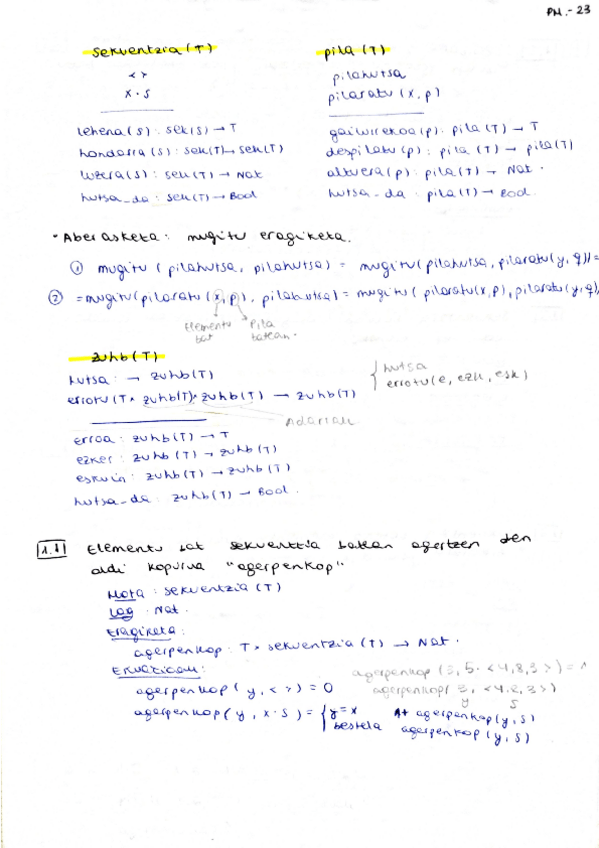 PN.-23
sekuentzia (T)
< >
x · s
lehena (s) : sek(s) → T
hondarra (s) : sek(T) → sek(T)
luzera (s) : sek(T) → Nat
hutsa_da : sek(T) → Bool
pila (T)
pilahutsa
pilaratu (x, p)
gailurrekoa (p) : pila (T) → T
despilatu (p) : pila (T) → pila(T)
altuera (p) : pila (T) → Nat.
hutsa_da : pila(T) → Bool.
* Aberasketa : mugitu eragiketa.
① mugitu ( pilahutsa, pilahutsa) = mugitu( pilahutsa, pilaratu(y, q)) =
② = mugitu( pilaratu (x, p) , pilahutsa) = mugitu ( pilaratu(x,p), pilaratu (y,q),
Elementu bat
Pila batean.
zuhb (T)
hutsa : → zuhb(T)
errotu (T × zuhb(T) × zuhb (T) → zuhb(T)
Adarrak
{ hutsa
errotu (e, ezk, esk)
erroa : zuhb(T) → T
ezker : zuhb (T) → zuhb (T)
eskuin : zuhb (T) → zuhb (T)
hutsa_da : zuhb (T) → Bool.
1.1 Elementu bat sekuentzia batean agertzen den
aldi kopurua "agerpenkop"
Mota : sekuentzia (T)
Lag : Nat.
Eragiketa :
agerpenkop : T × sekuentzia (T) → Nat.
Ekuazioak :
agerpenkop (3, 5 · <4,8,3>) = 1
agerpenkop ( y, < >) = 0
agerpenkop( 3, <4,8,3>)
y s
agerpenkop ( y, x · s) = { y = x 1 + agerpenkop (y, s)
bestela agerpenkop (y, s)